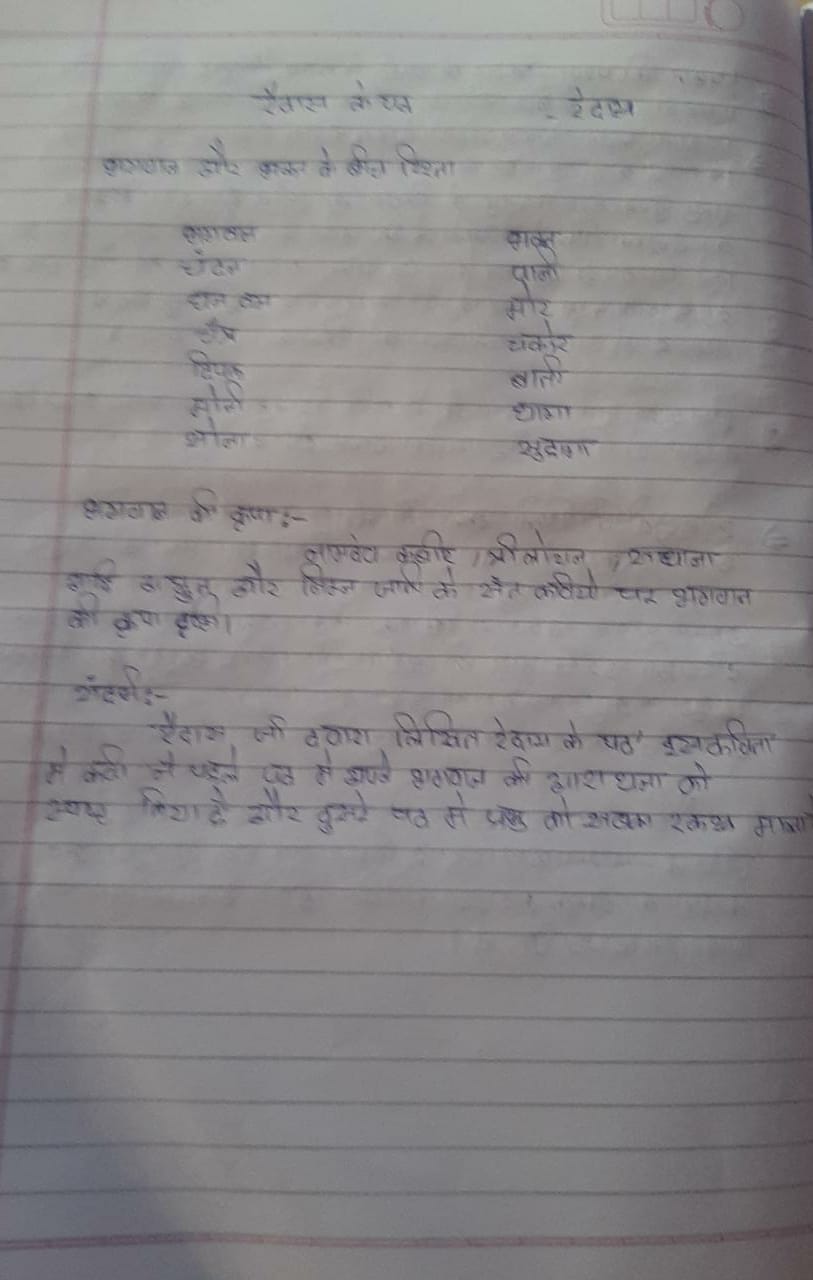 रैदास के पद - रैदास
भगवान और भक्त के बीच रिश्ता
भगवान भक्त
चंदन पानी
घन वन मोर
चाँद चकोर
दिपक बाती
मोती धागा
सोना सुहागा
भगवान की कृपा :-
नामदेव कबीर, त्रीलोचन, सधाना
और निम्न जाति के संत कवियो पर भगवान
की कृपा
संदर्भ :-
रैदास जी द्वारा लिखित 'रैदास के पद' इस कविता
मे कवि ने पहले पद मे अपने भगवान की आराधना को
स्पष्ट किया है और दुसरे पद मे प्रभु को सबका रक्षक माना